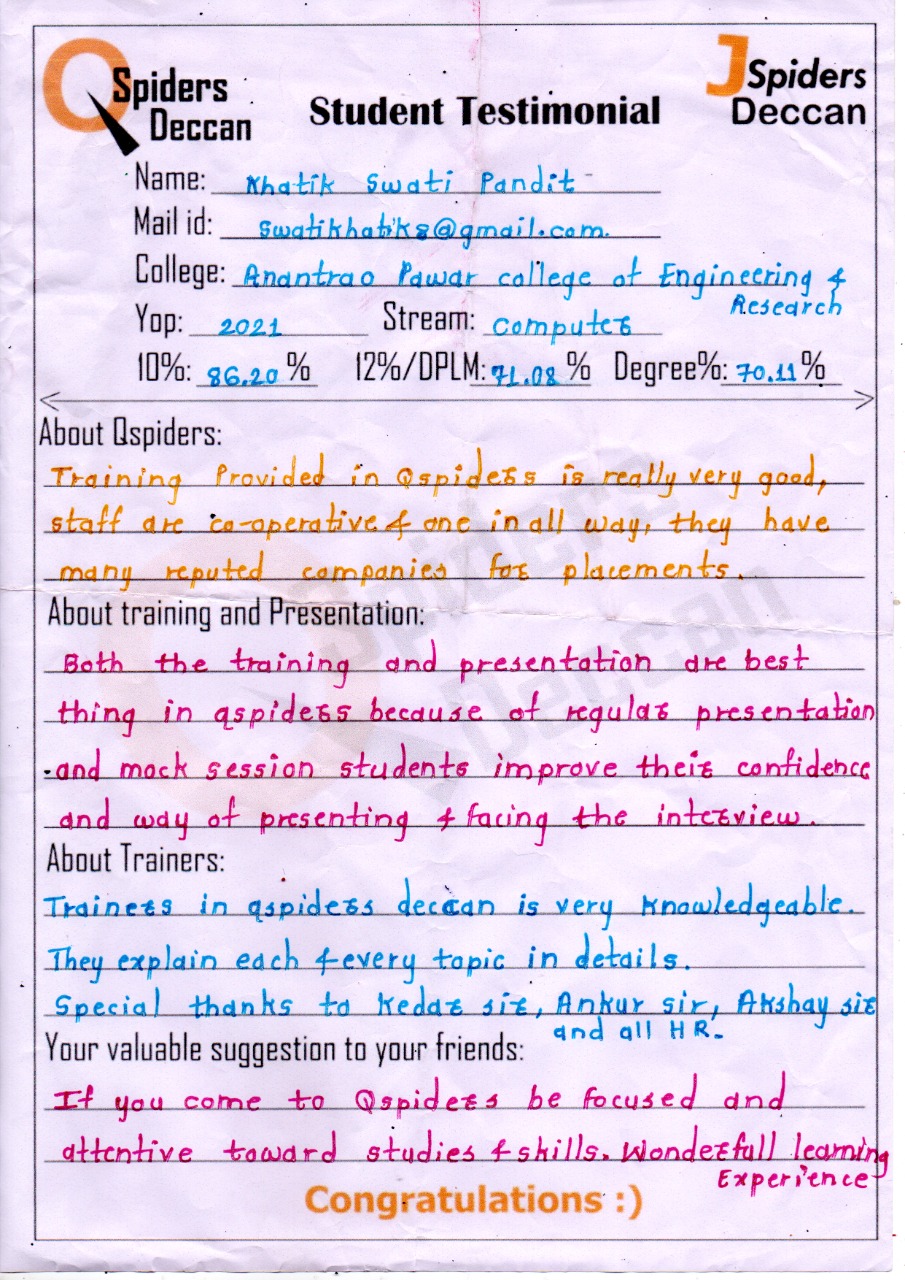 QSpiders Deccan
Student Testimonial
JSpiders Deccan
Name: Khatik Swati Pandit
Mail id: swatikhatik8@gmail.com
College: Anantrao Pawar college of Engineering &
Research
Yop: 2021 Stream: Computer
10%: 86.20 % 12%/DPLM: 71.08 % Degree%: 70.11 %
About Qspiders:
Training Provided in Qspiders is really very good,
staff are co-operative & one in all way, they have
many reputed companies for placements.
About training and Presentation:
Both the training and presentation are best
thing in qspiders because of regular presentation
and mock session students improve their confidence
and way of presenting & facing the interview.
About Trainers:
Trainers in qspiders deccan is very knowledgeable.
They explain each & every topic in details.
Special thanks to Kedar sir, Ankur sir, Akshay sir
and all HR.
Your valuable suggestion to your friends:
If you come to Qspiders be focused and
attentive toward studies & skills. Wonderfull learning
Experience
Congratulations :)